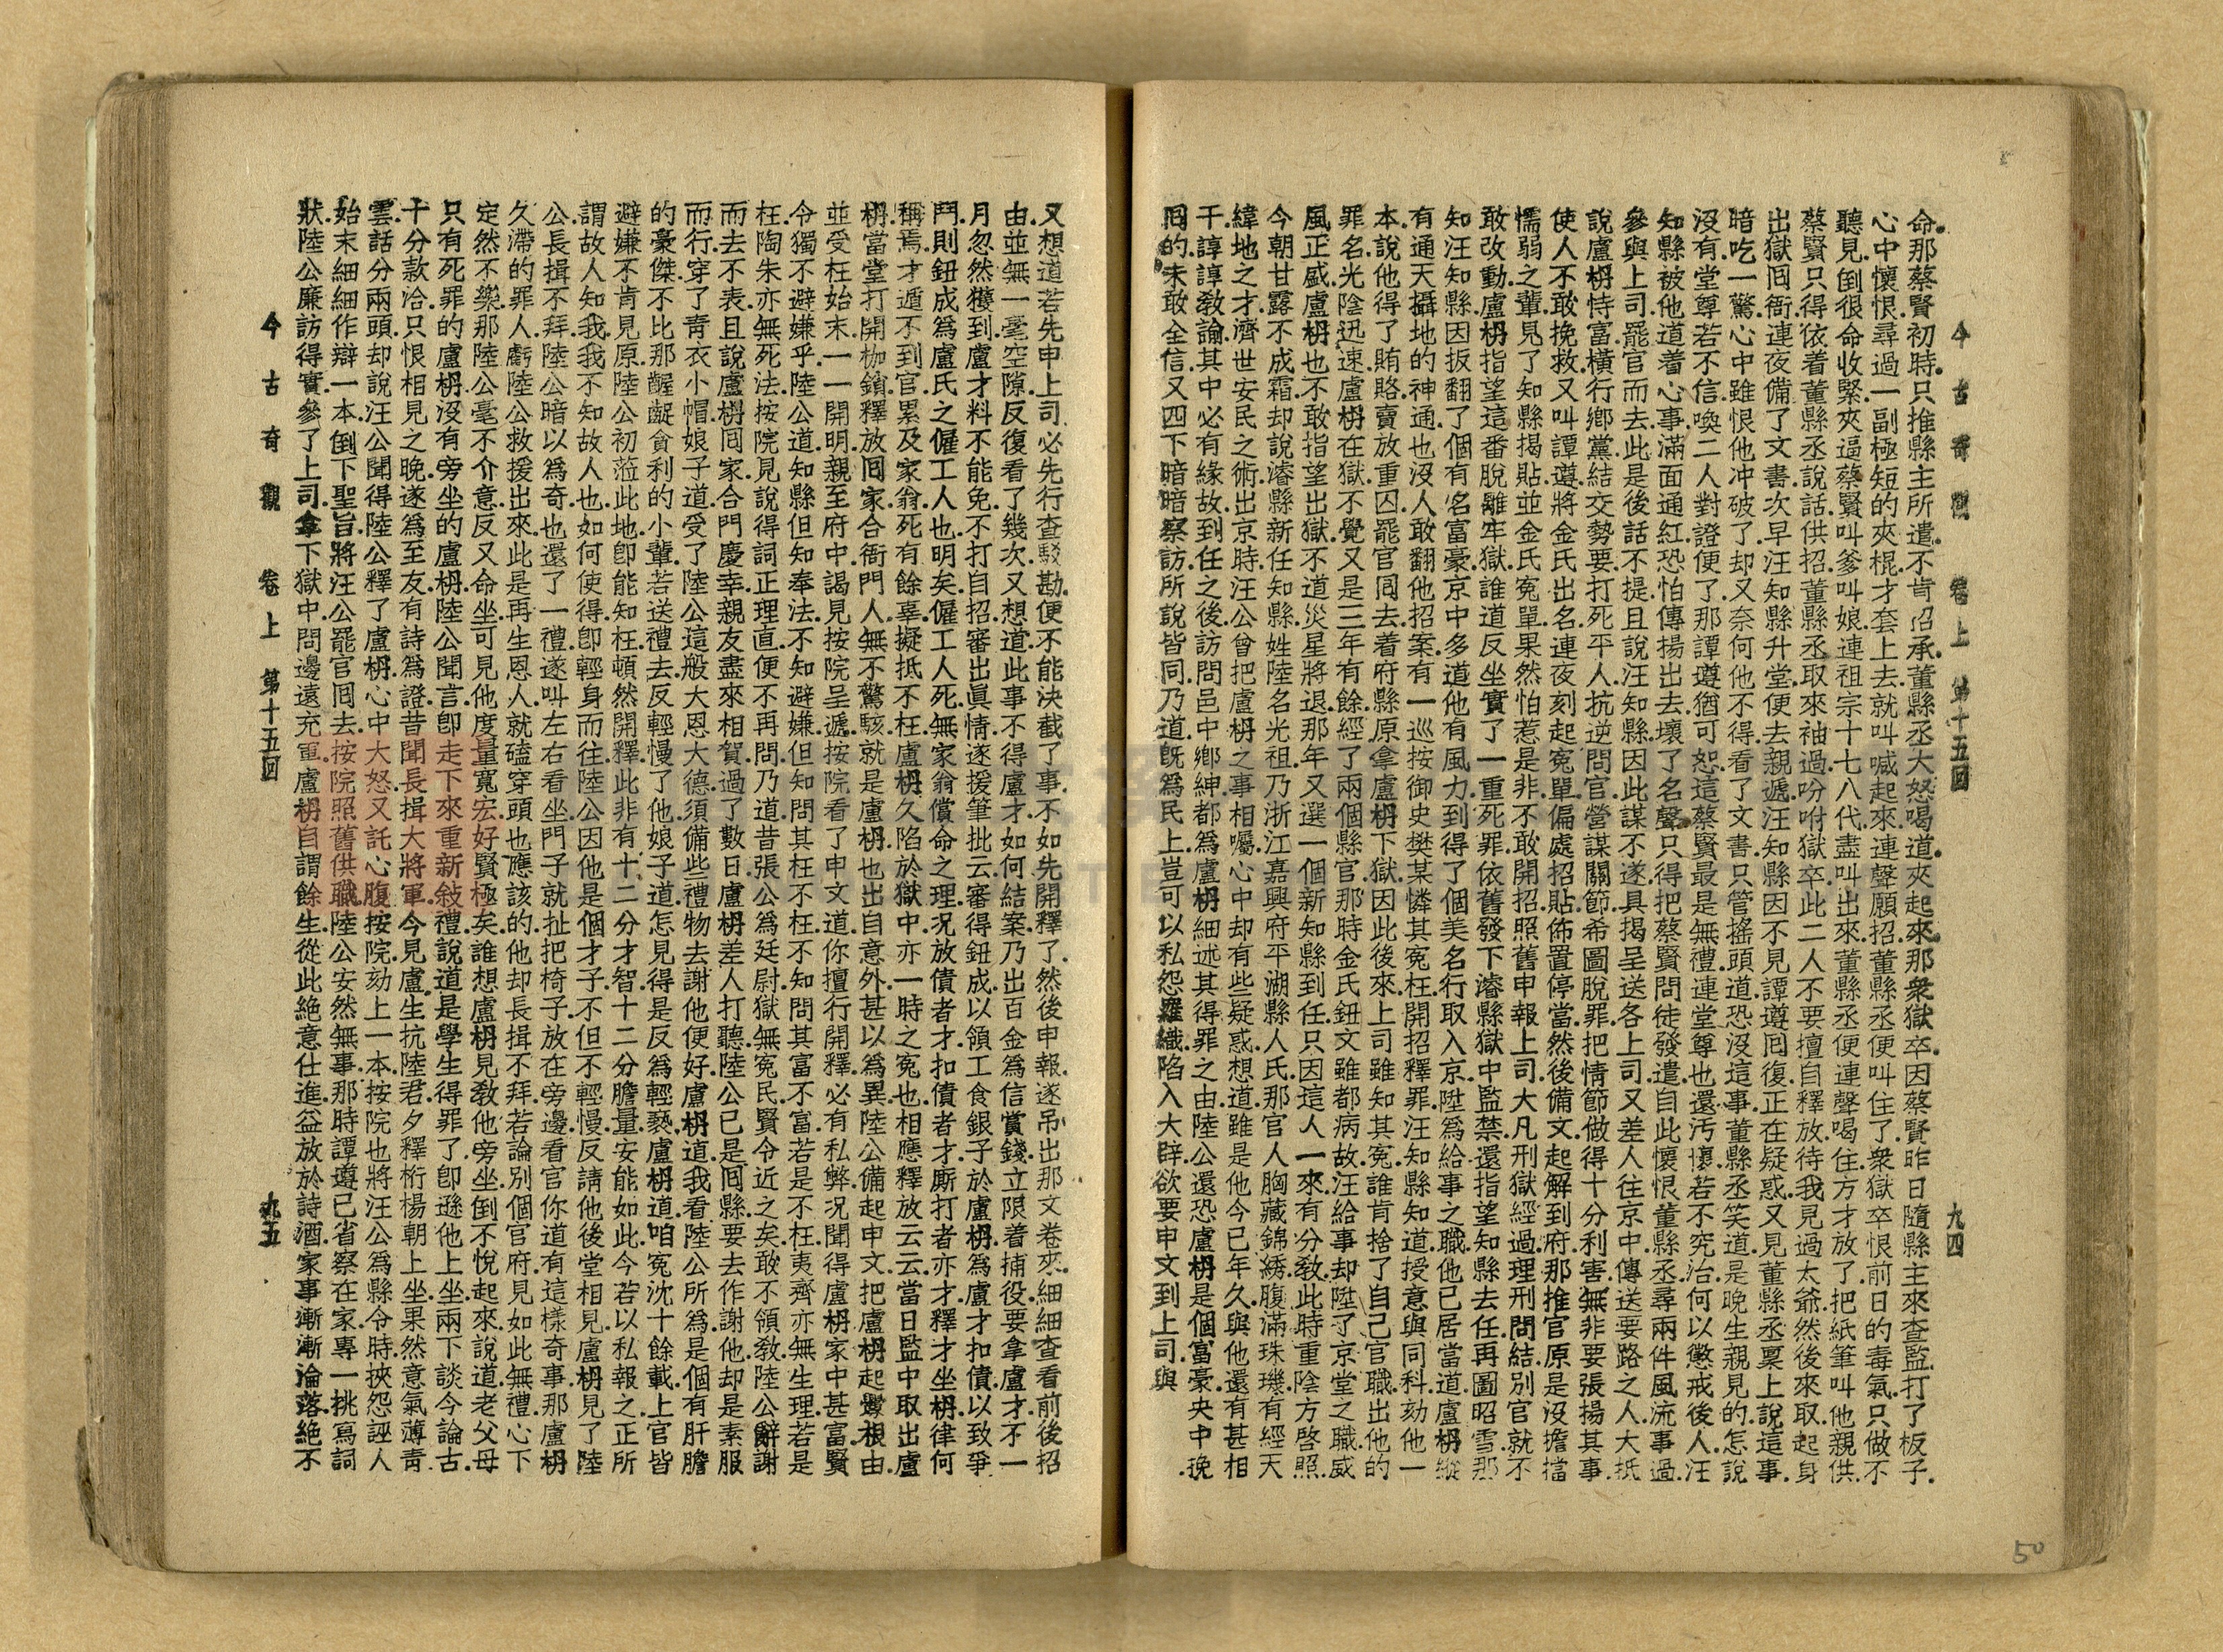 今古奇觀 卷上 第十五回 九四
命那蔡賢初時只推縣主所遣不肯招承董縣丞大怒喝道夾起來那衆獄卒因蔡賢昨日隨縣主來查監打了板子
心中懷恨尋過一副極短的夾棍才套上去就叫喊起來連聲願招董縣丞便叫住了衆獄卒恨前日的毒氣只做不
聽見倒很命收緊夾逼蔡賢叫爹叫娘連祖宗十七八代盡叫出來董縣丞便連聲喝住方才放了把紙筆叫他親供
蔡賢只得依着董縣丞說話供招董縣丞取來袖過吩咐獄卒此二人不要擅自釋放待我見過太爺然後來取起身
出獄囘衙連夜備了文書次早汪知縣升堂便去親遞汪知縣因不見譚遵囘復正在疑惑又見董縣丞稟上說這事
暗吃一驚心中雖恨他冲破了却又奈何他不得看了文書只管搖頭道恐沒這事董縣丞笑道是晚生親見的怎說
沒有堂尊若不信喚二人對證便了那譚遵猶可恕這蔡賢最是無禮連堂尊也還汚壞若不究治何以懲戒後人汪
知縣被他道着心事滿面通紅恐怕傳揚出去壞了名聲只得把蔡賢問徒發遣自此懷恨董縣丞尋兩件風流事過
參與上司罷官而去此是後話不提且說汪知縣因此謀不遂具揭呈送各上司又差人往京中傳送要路之人大抵
說盧枬恃富橫行鄉黨結交勢要打死平人抗逆問官營謀關節希圖脫罪把情節做得十分利害無非要張揚其事
使人不敢挽救又叫譚遵將金氏出名連夜刻起寃單偏處招貼佈置停當然後備文起解到府那推官原是沒擔擋
懦弱之輩見了知縣揭貼並金氏寃單果然怕惹是非不敢開招照舊申報上司大凡刑獄經過理刑問結別官就不
敢改動盧枬指望這番脫離牢獄誰道反坐實了一重死罪依舊發下濬縣獄中監禁還指望知縣去任再圖昭雪那
知汪知縣因扳翻了個有名富豪京中多道他有風力到得了個美名行取入京陞爲給事之職他已居當道盧枬縱
有通天攝地的神通也沒人敢翻他招案有一巡按御史樊某憐其寃枉開招釋罪汪知縣知道授意與同科劾他一
本說他得了賄賂賣放重囚罷官囘去着府縣原拿盧枬下獄因此後來上司雖知其寃誰肯捨了自己官職出他的
罪名光陰迅速盧枬在獄不覺又是三年有餘經了兩個縣官那時金氏鈕文雖都病故汪給事却陞了京堂之職威
風正盛盧枬也不敢指望出獄不道災星將退那年又選一個新知縣到任只因這人一來有分敎此時重陰方啓照
今朝甘露不成霜却說濬縣新任知縣姓陸名光祖乃浙江嘉興府平湖縣人氏那官人胸藏錦綉腹滿珠璣有經天
緯地之才濟世安民之術出京時汪公曾把盧枬之事相囑心中却有些疑惑想道雖是他今已年久與他還有甚相
干諄諄敎諭其中必有緣故到任之後訪問邑中鄉紳都爲盧枬細述其得罪之由陸公還恐盧枬是個富豪央中挽
囘的未敢全信又四下暗暗察訪所說皆同乃道旣爲民上豈可以私怨羅織陷入大辟欲要申文到上司與
又想道若先申上司必先行查駁勘便不能決截了事不如先開釋了然後申報遂吊出那文卷來細細查看前後招
由並無一毫空隙反復看了幾次又想道此事不得盧才如何結案乃出百金爲信賞錢立限着捕役要拿盧才不一
月忽然獲到盧才料不能免不打自招審出眞情遂援筆批云審得鈕成以領工食銀子於盧枬爲盧才扣債以致爭
鬥則鈕成爲盧氏之僱工人也明矣僱工人死無家翁償命之理况放債者才扣債者才厮打者亦才釋才坐枬律何
稱焉才遁不到官累及家翁死有餘辜擬抵不枉盧枬久陷於獄中亦一時之寃也相應釋放云云當日監中取出盧
枬當堂打開枷鎖釋放囘家合衙門人無不驚駭就是盧枬也出自意外甚以爲異陸公備起申文把盧枬起釁根由
並受枉始末一一開明親至府中謁見按院呈遞按院看了申文道你擅行開釋必有私弊况聞得盧枬家中甚富賢
令獨不避嫌乎陸公道知縣但知奉法不知避嫌但知問其枉不枉不知問其富不富若是不枉夷齊亦無生理若是
枉陶朱亦無死法按院見說得詞正理直便不再問乃道昔張公爲廷尉獄無寃民賢令近之矣敢不領敎陸公辭謝
而去不表且說盧枬囘家合門慶幸親友盡來相賀過了數日盧枬差人打聽陸公已是囘縣要去作謝他却是素服
而行穿了靑衣小帽娘子道受了陸公這般大恩大德須備些禮物去謝他便好盧枬道我看陸公所爲是個有肝膽
的豪傑不比那齷齪貪利的小輩若送禮去反輕慢了他娘子道怎見得是反爲輕褻盧枬道咱寃沈十餘載上官皆
避嫌不肯見原陸公初蒞此地卽能知枉頓然開釋此非有十二分才智十二分膽量安能如此今若以私報之正所
謂故人知我我不知故人也如何使得卽輕身而往陸公因他是個才子不但不輕慢反請他後堂相見盧枬見了陸
公長揖不拜陸公暗以爲奇也還了一禮遂叫左右看坐門子就扯把椅子放在旁邊看官你道有這樣奇事那盧枬
久滯的罪人虧陸公救援出來此是再生恩人就磕穿頭也應該的他却長揖不拜若論別個官府見如此無禮心下
定然不樂那陸公毫不介意反又命坐可見他度量寬宏好賢極矣誰想盧枬見敎他旁坐倒不悅起來說道老父母
只有死罪的盧枬沒有旁坐的盧枬陸公聞言卽走下來重新敍禮說道是學生得罪了卽遜他上坐兩下談今論古
十分款洽只恨相見之晚遂爲至友有詩爲證昔聞長揖大將軍今見盧生抗陸君夕釋桁楊朝上坐果然意氣薄靑
雲話分兩頭却說汪公聞得陸公釋了盧枬心中大怒又託心腹按院劾上一本按院也將汪公爲縣令時挾怨誣人
始末細細作辯一本倒下聖旨將汪公罷官囘去按院照舊供職陸公安然無事那時譚遵已省察在家專一挑寫詞
狀陸公廉訪得實參了上司拿下獄中問邊遠充軍盧枬自謂餘生從此絕意仕進益放於詩酒家事漸漸淪落絕不
今古奇觀 卷上 第十五回 九五
50